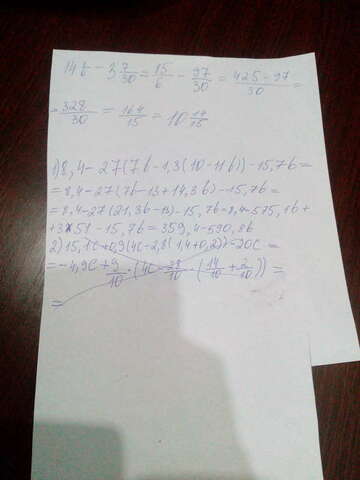 14/6 - 3 7/30 = 15/6 - 97/30 = 425-97/30 =
= 328/30 = 164/15 = 10 14/15
1) 8,4-27(7b-1,3(10-11b))-15,7b=
=8,4-27(7b-13+14,3b)-15,7b=
=8,4-27(21,3b-13)-15,7b=8,4-575,1b+
+351-15,7b=359,4-590,8b
2) 15,1c+0,9(4c-2,8(1,4+0,2))-20c=
=-4,9c+9/10·(4c-28/10·(14/10+2/10))=
=